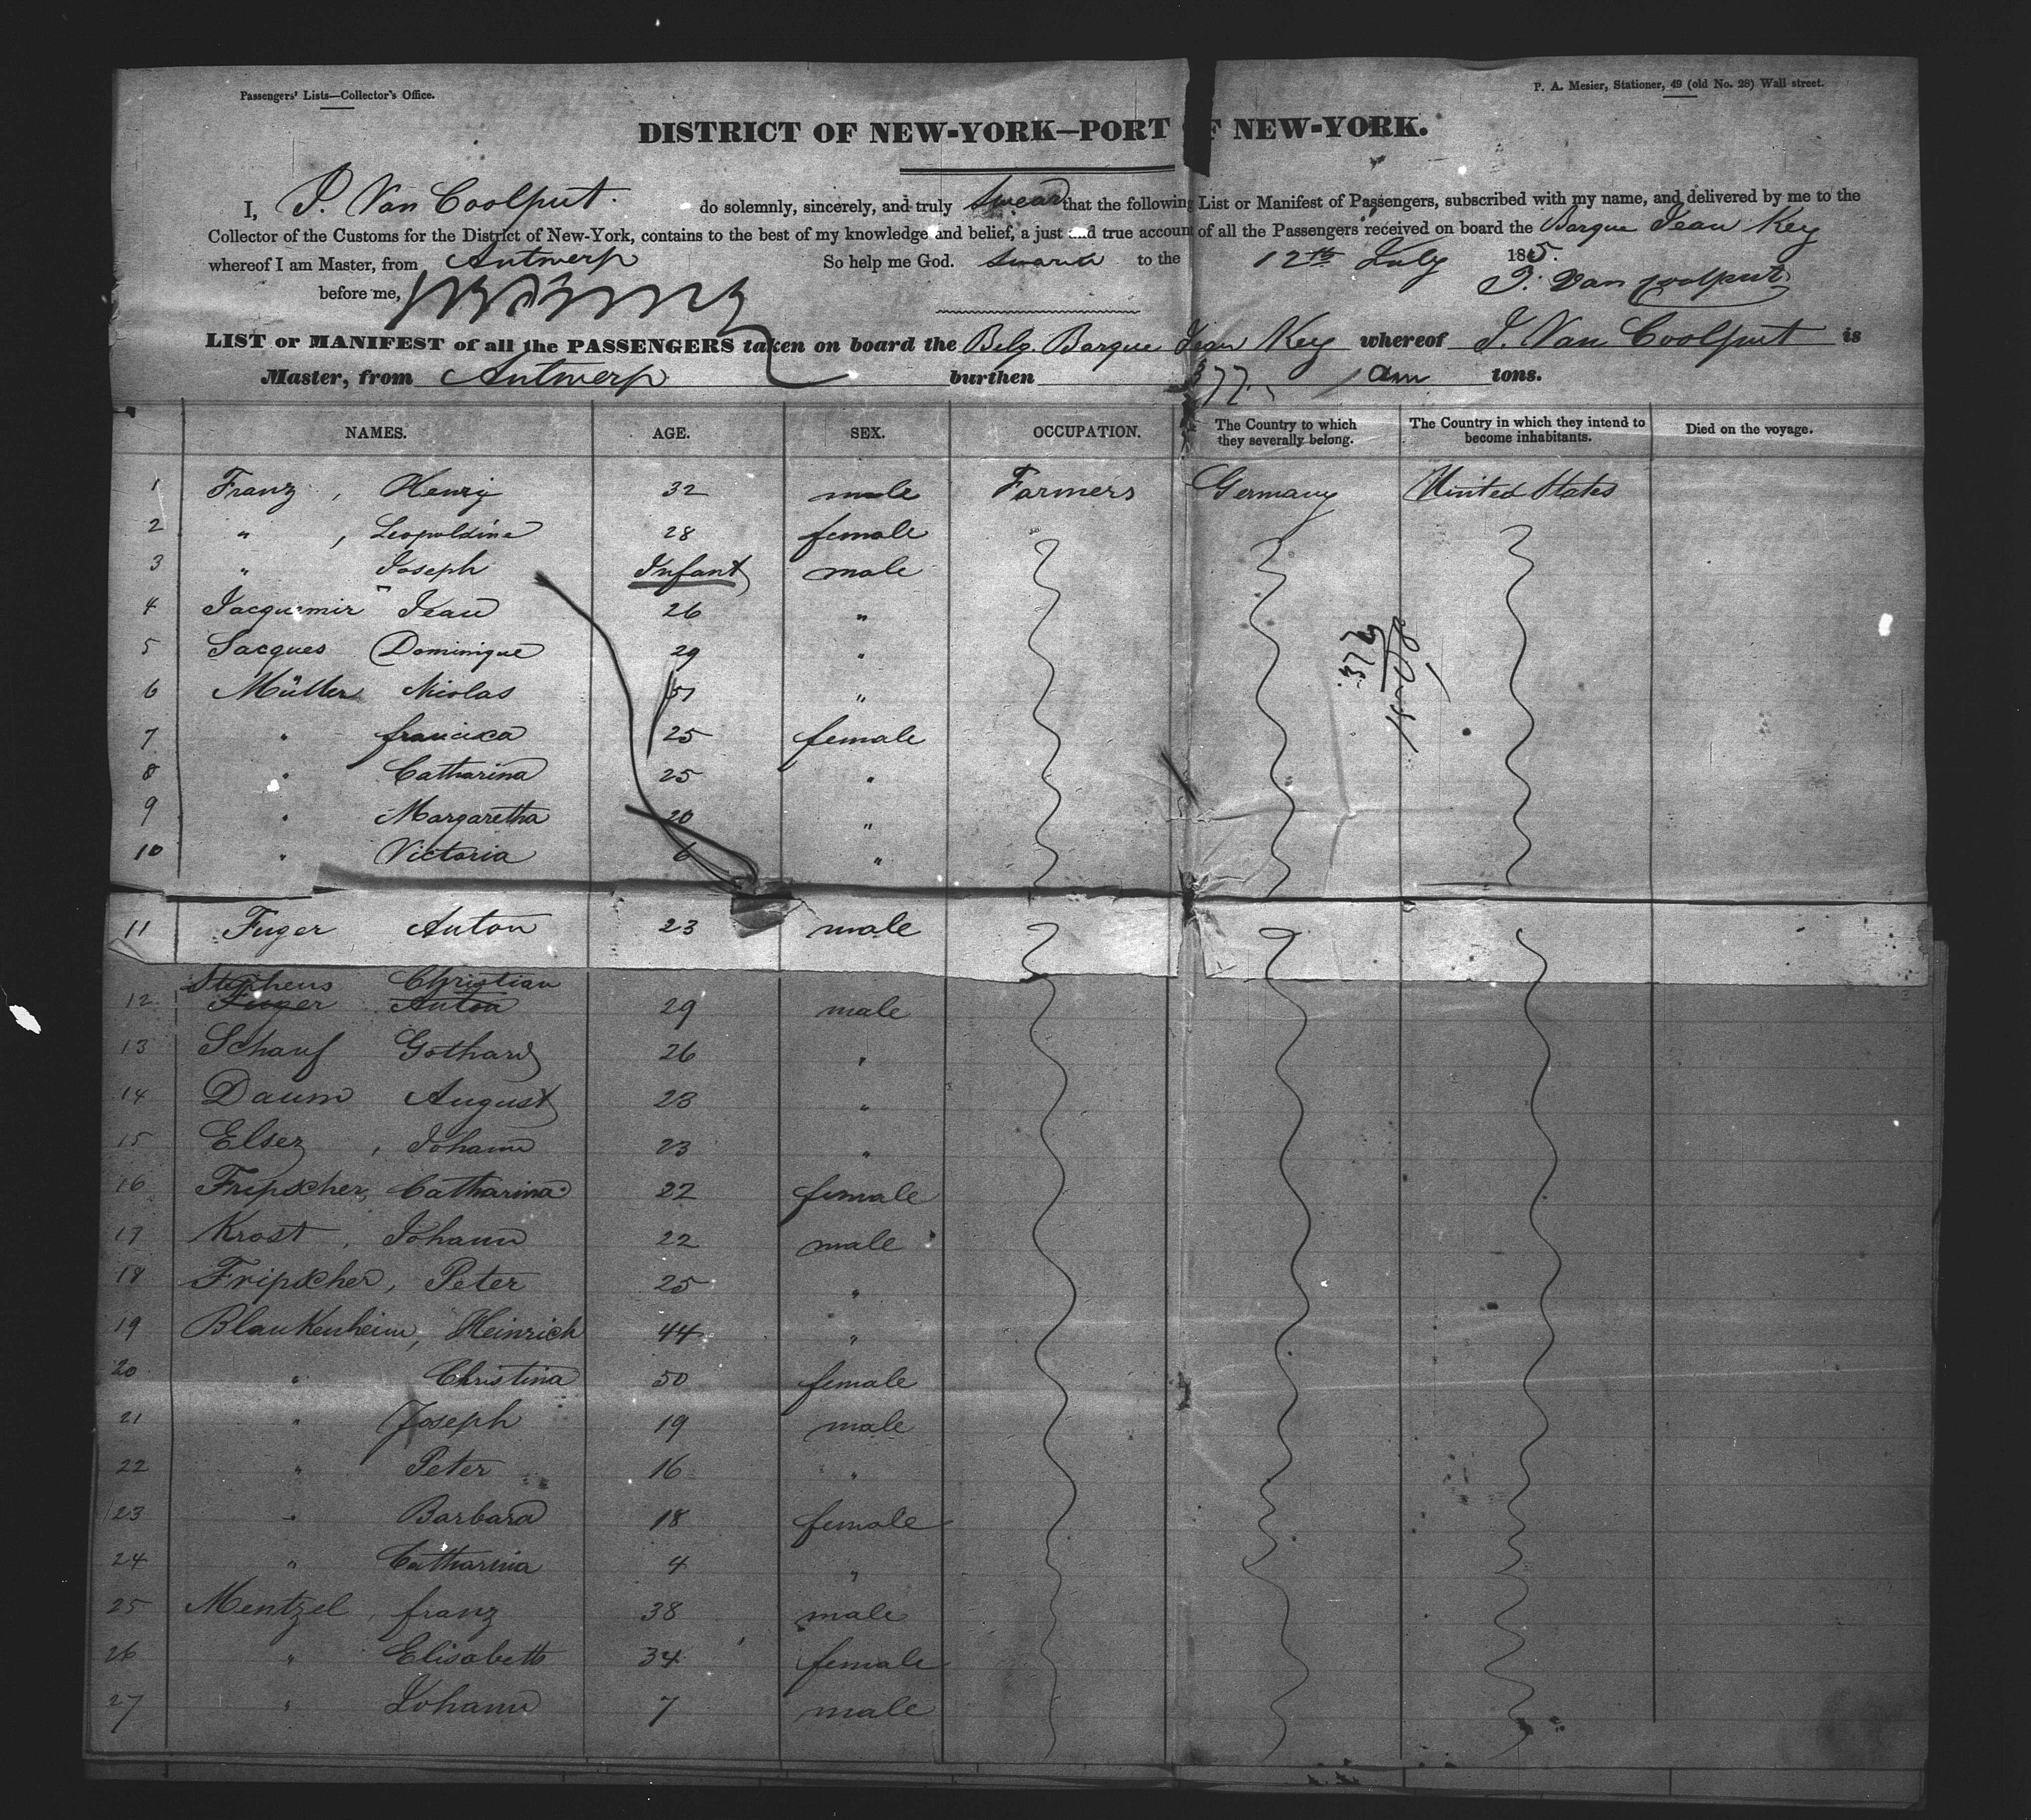 Passengers' Lists—Collector's Office.
P. A. Mesier, Stationer, 49 (old No. 28) Wall street.
DISTRICT OF NEW-YORK—PORT OF NEW-YORK.
I, P. Van Coolput. do solemnly, sincerely, and truly swear that the following List or Manifest of Passengers, subscribed with my name, and delivered by me to the
Collector of the Customs for the District of New-York, contains to the best of my knowledge and belief, a just and true account of all the Passengers received on board the Barque Jean Key
whereof I am Master, from Antwerp So help me God. Sworn to the 12th July 185.
before me, P. Van Coolput
LIST or MANIFEST of all the PASSENGERS taken on board the Belg. Barque Jean Key whereof J. Van Coolput is
Master, from Antwerp burthen 377. tons.
NAMES. AGE. SEX. OCCUPATION. The Country to which they severally belong. The Country in which they intend to become inhabitants. Died on the voyage.
1 Franz, Henry 32 male Farmers Germany United States
2 " , Leopoldine 28 female
3 " Joseph Infant male
4 Jacquemir Jean 26 "
5 Jacques Dominique 29 "
6 Müller Nicolas 51 "
7 " francisca 25 female
8 " Catharina 25 "
9 " Margaretha 20 "
10 " Victoria 6 "
11 Fuger Anton 23 male
Stephens Christian
12 Fuger Anton 29 male
13 Schauf Gothard 26 "
14 Daum August 23 "
15 Elsez, Johann 23 "
16 Fripscher, Catharina 22 female
17 Krost, Johann 22 male
18 Fripscher, Peter 25 "
19 Blankenheim, Heinrich 44 "
20 " Christina 50 female
21 " Joseph 19 male
22 " Peter 16 "
23 " Barbara 18 female
24 " Catharina 4 "
25 Mentzel, franz 38 male
26 " Elisabeth 34 female
27 " Johann 7 male